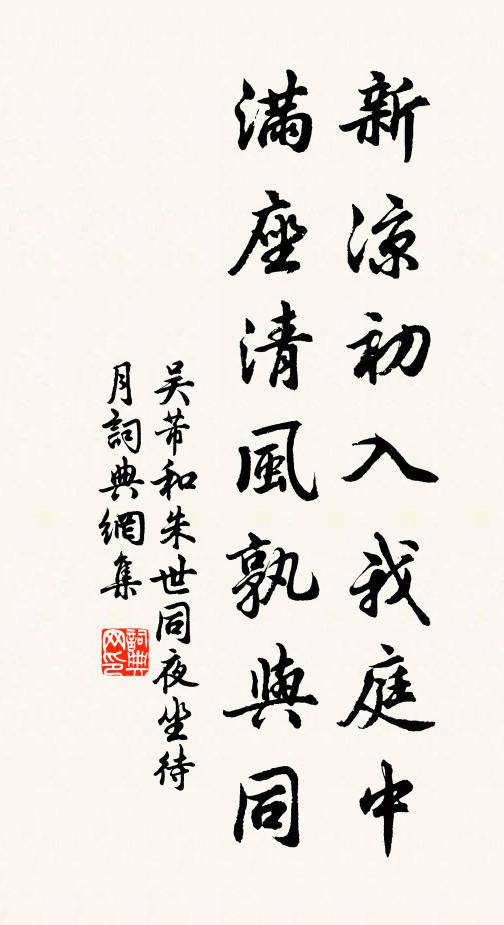 新涼初入我庭中
滿座清風孰與同
吴芾和朱世同夜坐待
月詞典網集
詞典网印